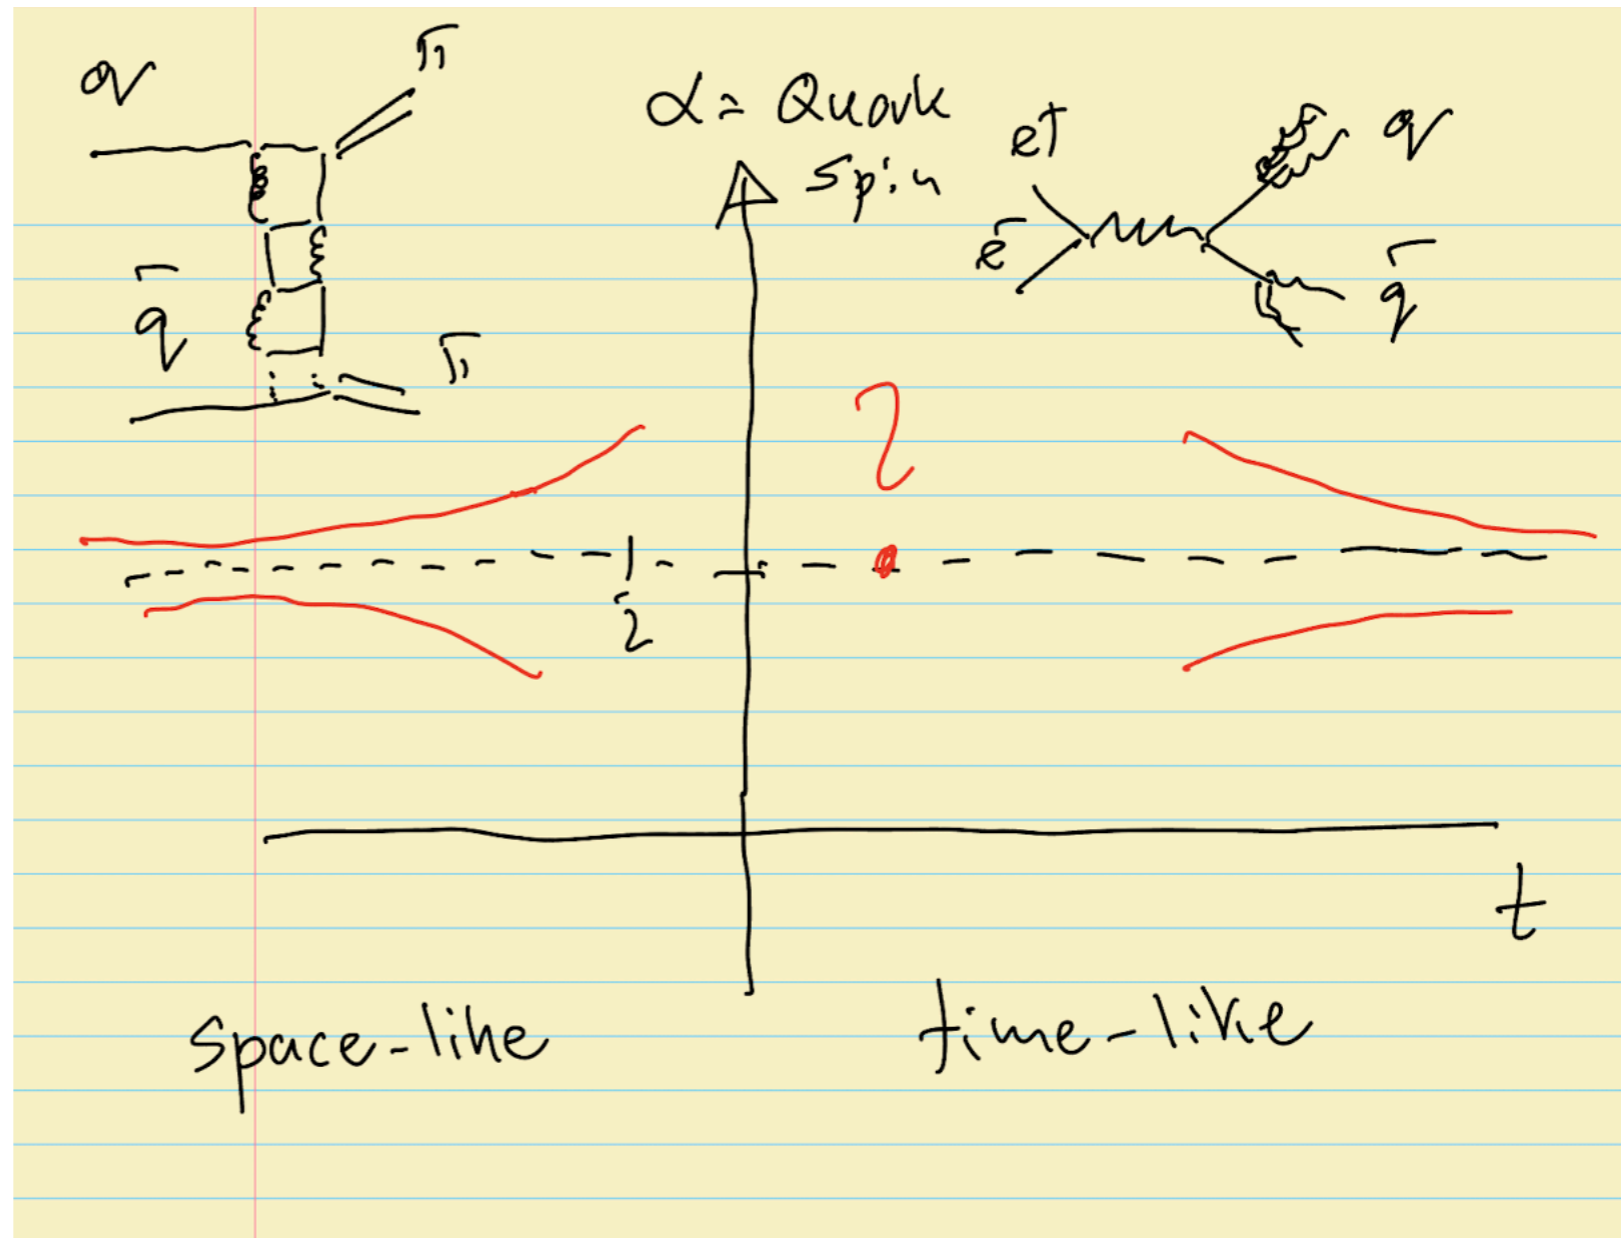 q
π
q̄
π
α = Quark
spin
e+
e-
q
q̄
?
1/2
t
space-like
time-like